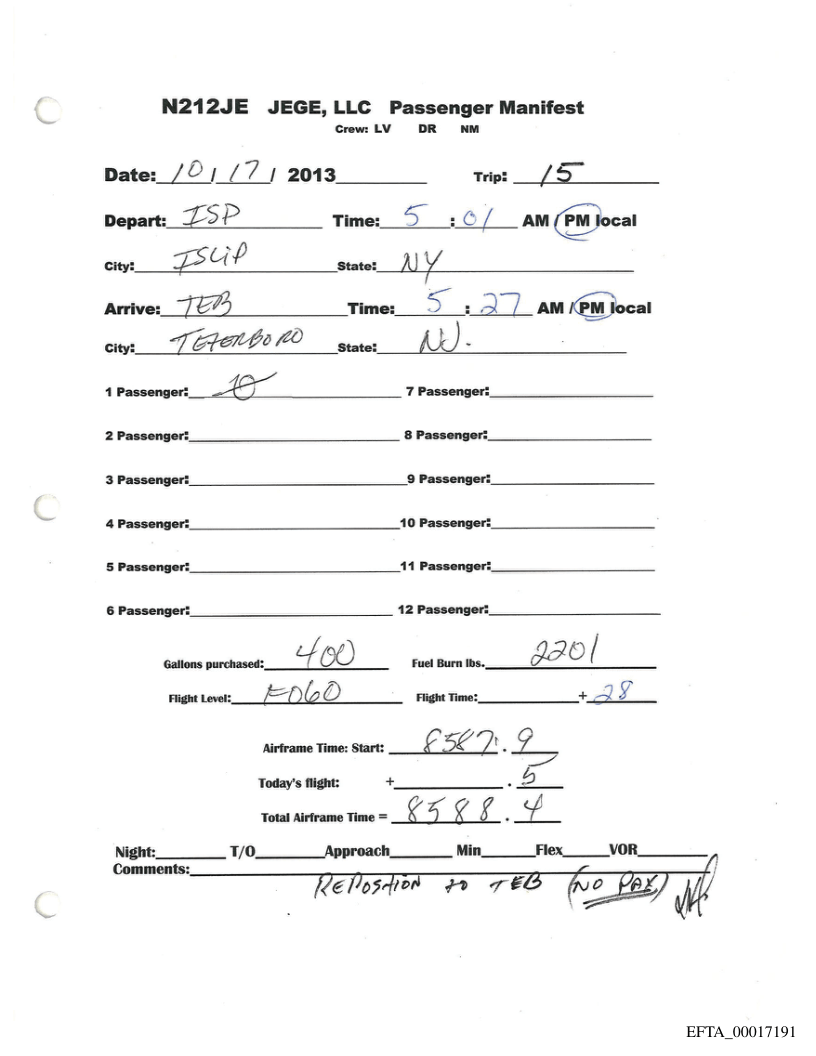 N212JE JEGE, LLC Passenger Manifest
Crew: LV DR NM
Date: 10 / 17 / 2013 Trip: 15
Depart: ISP Time: 5 : 01 AM / PM local
City: ISLIP State: NY
Arrive: TEB Time: 5 : 27 AM / PM local
City: TETERBORO State: NJ.
1 Passenger: 7 Passenger:
2 Passenger: 8 Passenger:
3 Passenger: 9 Passenger:
4 Passenger: 10 Passenger:
5 Passenger: 11 Passenger:
6 Passenger: 12 Passenger:
Gallons purchased: 400 Fuel Burn lbs. 2201
Flight Level: F060 Flight Time: + 28
Airframe Time: Start: 8587 . 9
Today's flight: + . 5
Total Airframe Time = 8588 . 4
Night: T/O Approach Min Flex VOR
Comments:
REPOSITION to TEB (NO PAX)
EFTA_00017191